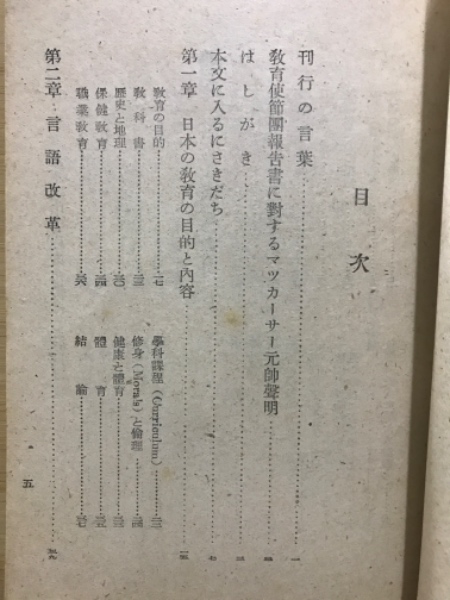 目次
刊行の言葉……一
教育使節團報告書に對するマツカーサー元帥聲明
はしがき……三
本文に入るにさきだち……七
第一章 日本の教育の目的と内容
教育の目的……一七
學科課程(Curriculum)
教科書
修身(Morals)と倫理
歴史と地理
健康と體育
保健教育
體育
職業教育
結論
第二章 言語改革
五